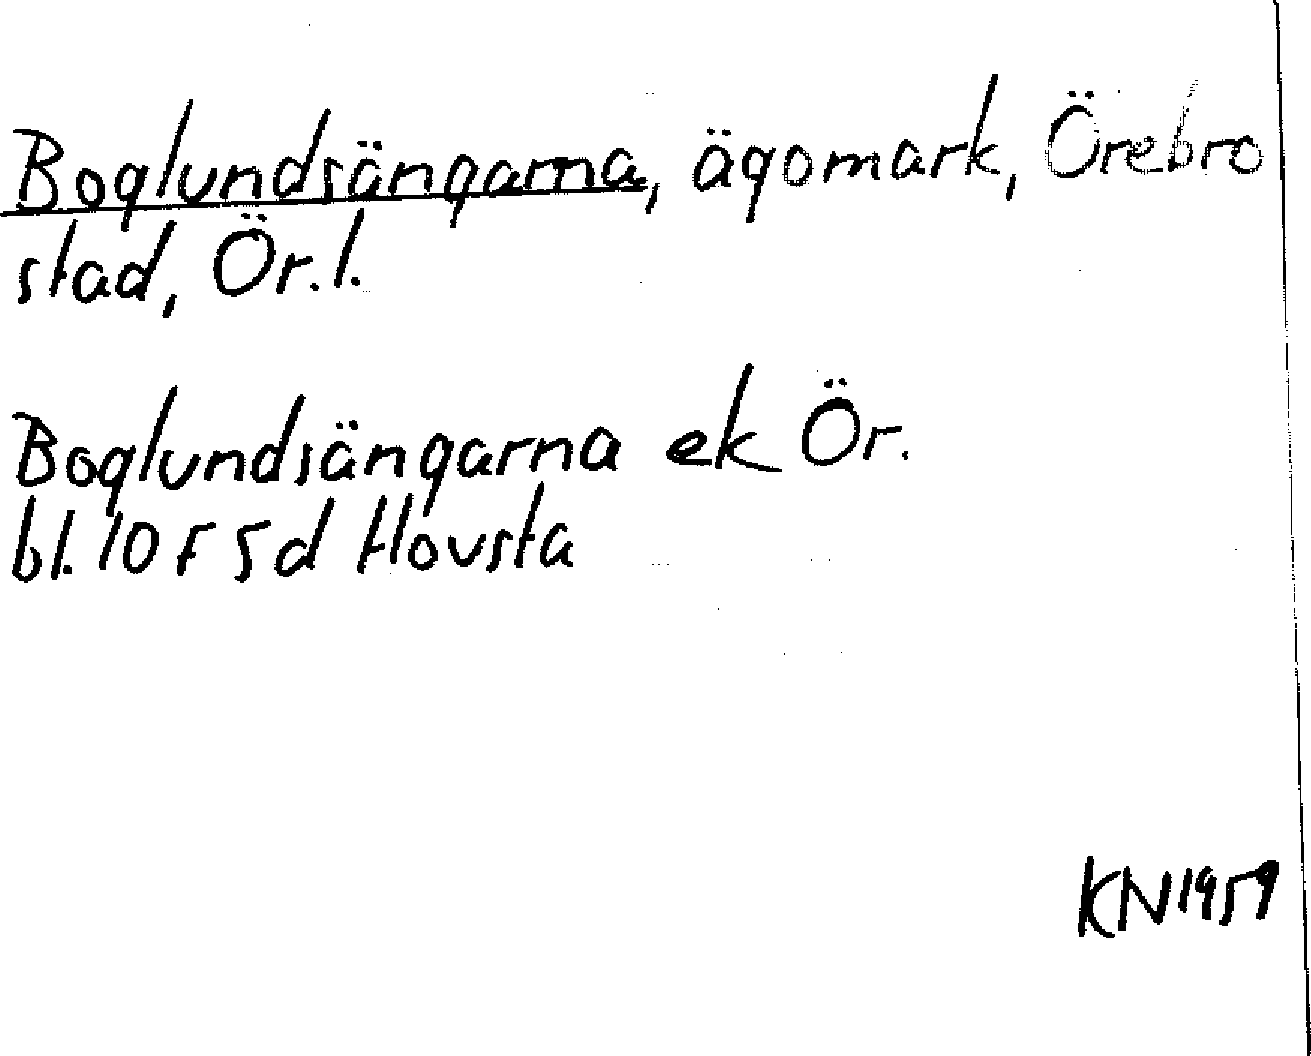 Boglundsängarna, ägomark, Örebro
stad, Ör. l.
Boglundsängarna ek Ör.
bl. 10 F 5 d Hovsta
KN 1959